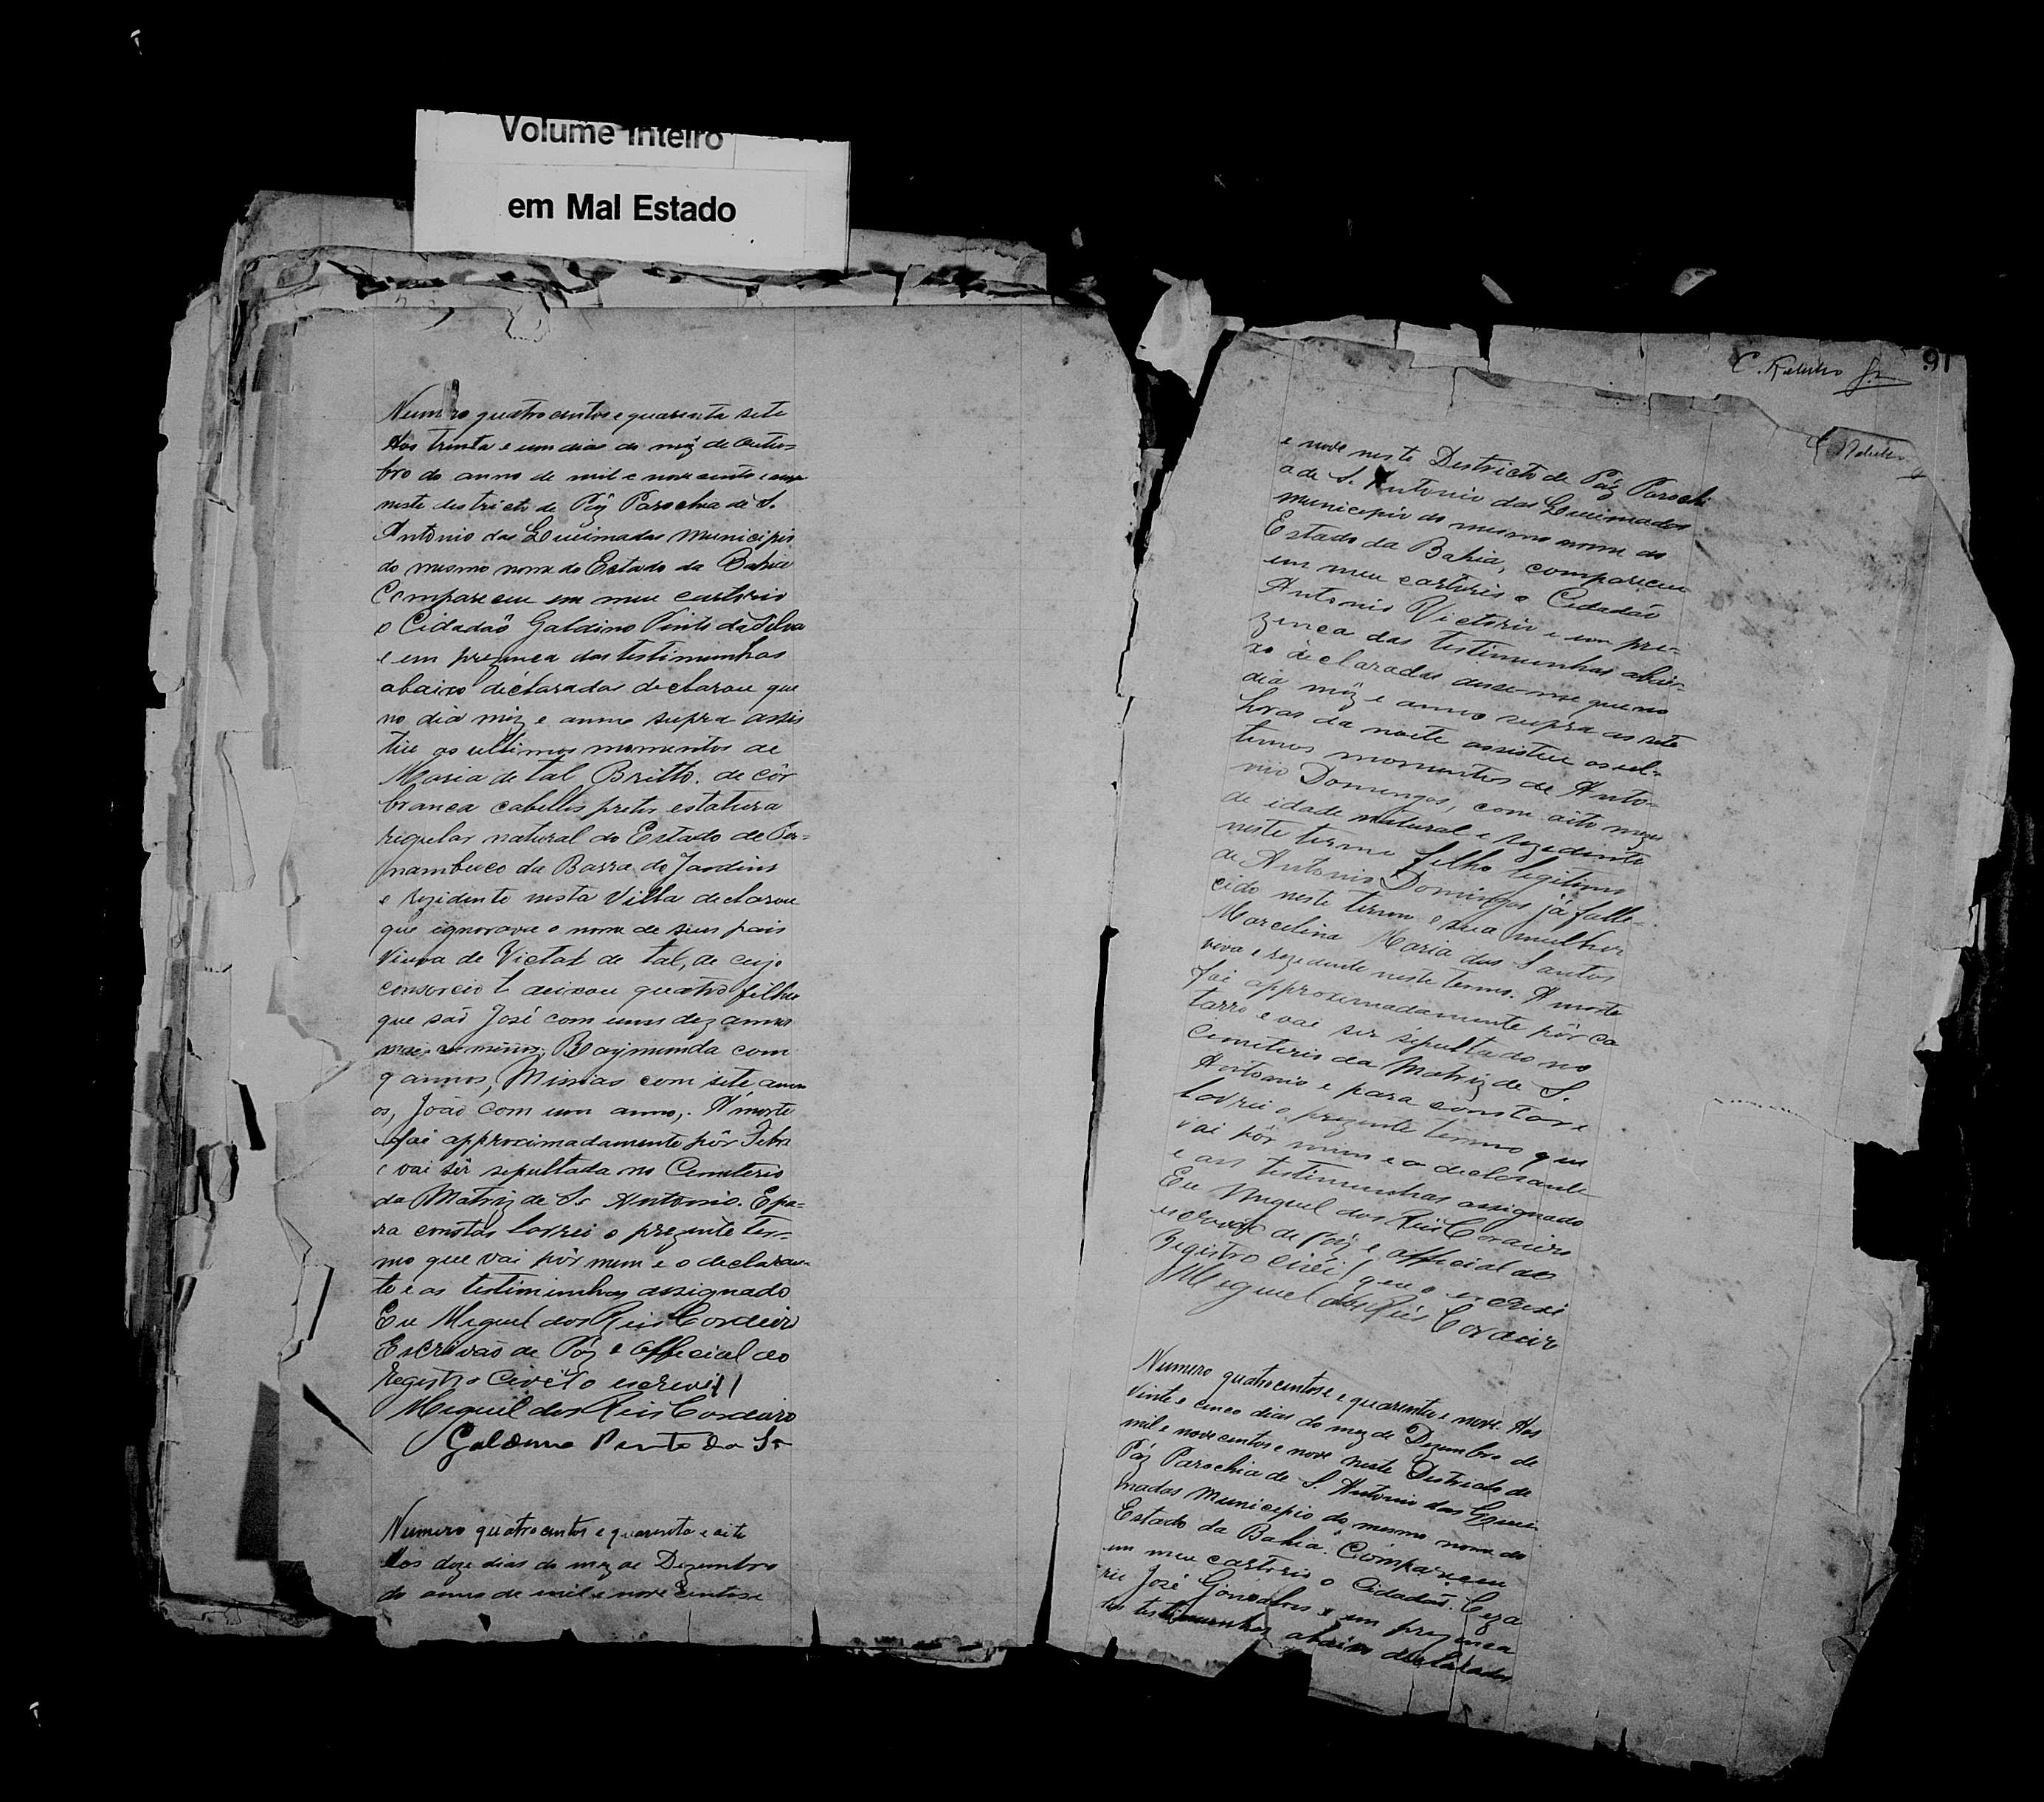 Volume Inteiro
em Mal Estado
Numero quatro centos e quarenta sete
Aos trinta e um dias do mez de Outu-
bro do anno de mil e nove centos e nove
neste destricto de Páz Parochia de S.
Antonio das Queimadas Municipio
do mesmo nome do Estado da Bahia
Compareceu em meu cartorio
o Cidadão Galdino Pinto da Silva
e em prezença das testimunhas
abaixo declaradas declarou que
no dia mez e anno supra assis
tiu os ultimos momentos de
Maria de tal Britto. de côr
branca cabellos pretos estatura
regular natural do Estado de Per-
nambuco da Barra de Jardins
e rezidente nesta Villa declarou
que ignorava o nome de seus pais
Viuva de Victal de tal, de cujo
consorcio deixou quatro filhos
que são José com uns dez annos
mais ou menos; Raymunda com
9 annos, Missias com sete ann
os, João com um anno,. A morte
foi approximadamente pôr Febre
e vai sêr sepultada no Cemiterio
da Matriz de S. Antonio. E pa-
ra constar lavrei o prezente ter-
mo que vai pôr mim e o declaran-
te e as testimunhas assignado
Eu Miguel dos Reis Cordeiro
Escrivão de Páz e Official do
Registro Civil o escrevi
Miguel dos Reis Cordeiro
Galdino Pinto da Sa
Numero quatro centos e quarenta e oito
Aos doze dias do mez de Dezembro
do anno de mil e nove centos e
91
e nove neste Destricto de Páz Parochi
a de S. Antonio das Queimadas
municipio do mesmo nome do
Estado da Bahia, compareceu
em meu cartorio o Cidadão
Antonio Victorio e em pre-
zença das testimunhas abai-
xo declaradas disse-me que no
dia mêz e anno supra as sete
horas da noite assistiu os ul-
timos momentos de Anto-
nio Domingos, com oito mezes
de idade natural e rezidente
neste termo filho legitimo
de Antonio Domingos já falle-
cido neste termo e sua mulher
Marcelina Maria dos Santos
viva e rezidente neste termo. A morte
foi approximadamente pôr ca
tarro e vai ser sepultado no
Cemiterio da Matriz de S.
Antonio e para constar e
lavrei o prezente termo que
vai pôr mim e o declarante
e as testimunhas assignado
Eu Miguel dos Reis Cordeiro
escrivão de Páz e official do
Registro Civil que o escrevi
Miguel dos Reis Cordeiro
Numero quatro centos e quarenta e nove. Aos
Vinte e cinco dias do mez de Dezembro de
mil e nove centos e nove neste Destricto de
Páz Parochia de S. Antonio das Quei-
madas Municipio do mesmo nome do
Estado da Bahia. Compareceu
em meu cartorio o Cidadão. Ceza
rio José Gonsalves e em prezença
das testimunhas abaixo declaradas